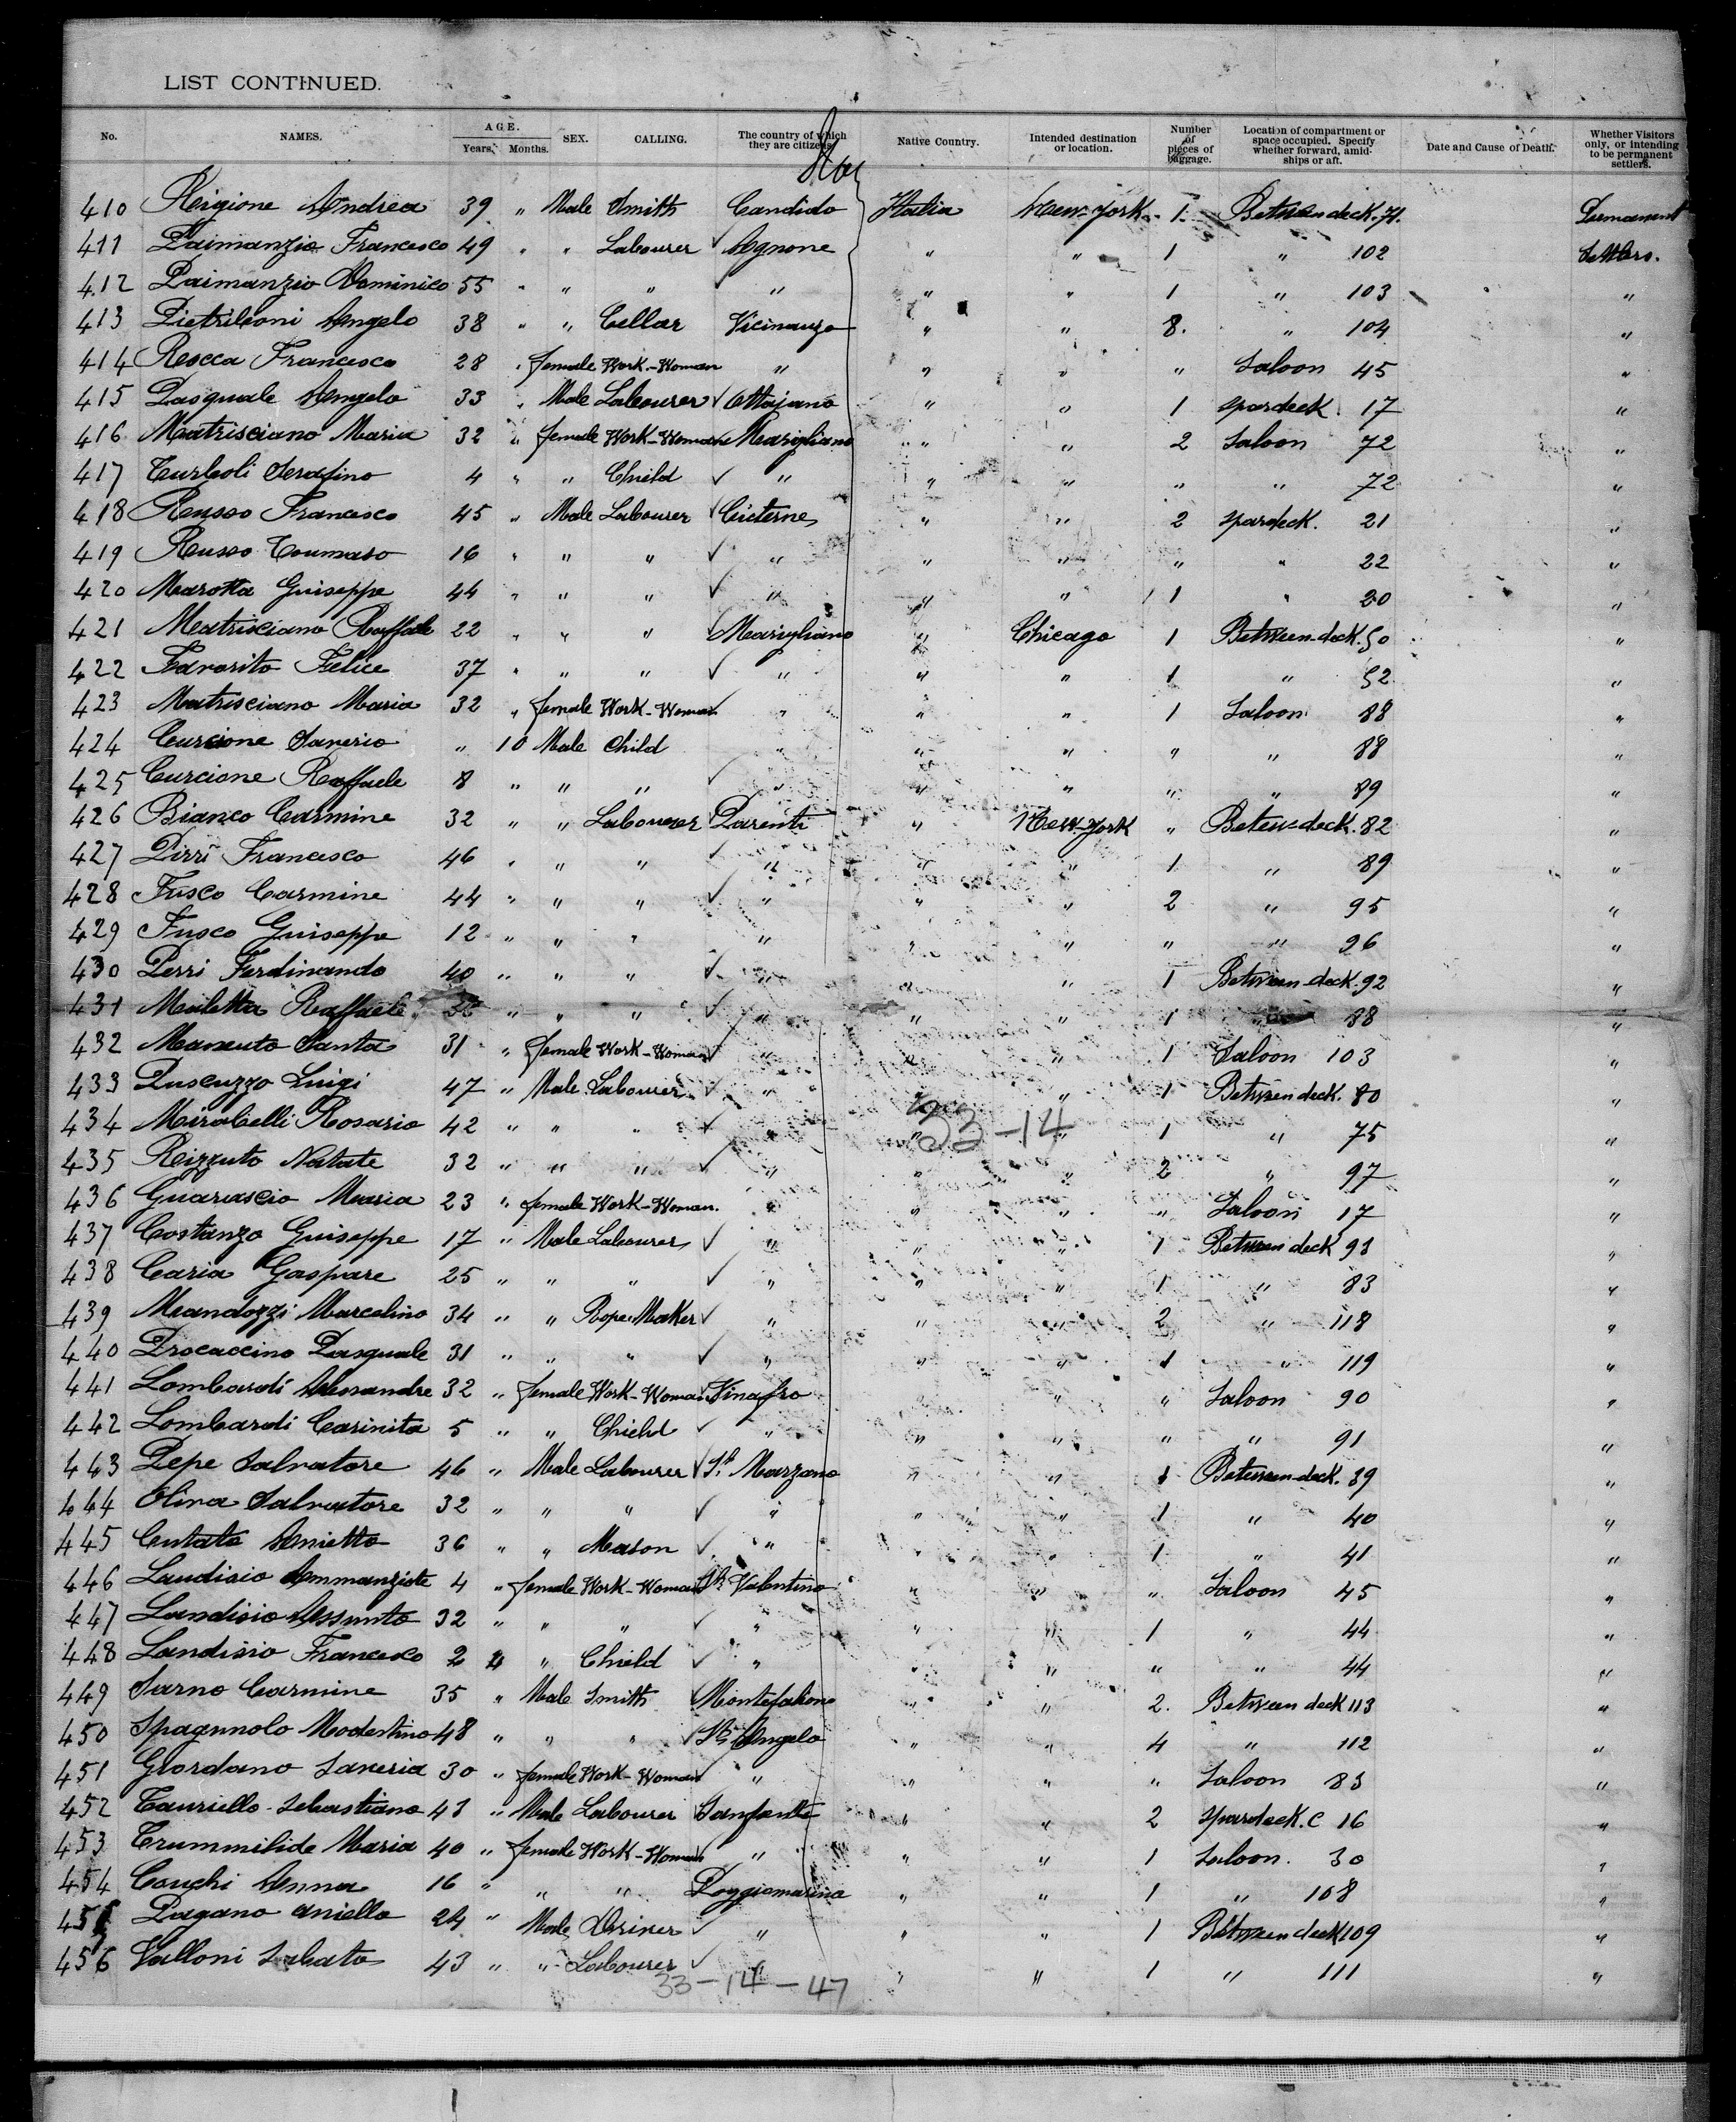 LIST CONTINUED.
No. NAMES. AGE. Years. Months. SEX. CALLING. The country of which they are citizens. Native Country. Intended destination or location. Number of pieces of baggage. Location of compartment or space occupied. Specify whether forward, amidships or aft. Date and Cause of Death. Whether Visitors only, or intending to be permanent settlers.
410 Andrea 39 " Male Smith Candido Italia New-York 1 Between deck. 71. Permanent
411 Francesco 49 " " Labourer Agnone " " 1 " 102 Settlers.
412 Dominico 55 " " " " " " 1 " 103 "
413 Angelo 38 " " Cellar " " 8. " 104 "
414 Rocca Francesco 28 " female Work-Woman " " " " Saloon 45 "
415 Pasquale Angelo 33 " Male Labourer Ottajano " " 1 spardeck 17 "
416 Matrisciano Maria 32 " female Work-Woman Marigliano " " 2 Saloon 72 "
417 Serafino 4 " " Child " " " " " 72 "
418 Russo Francesco 45 " Male Labourer " " 2 spardeck. 21 "
419 Russo Toumaso 16 " " " " " " " " 22 "
420 Marotta Guiseppe 44 " " " " " " 1 " 20 "
421 Matrisciano Raffaele 22 " " " Marigliano " Chicago 1 Between-deck. 50 "
422 Favorito Felice 37 " " " " " " 1 " 52 "
423 Matrisciano Maria 32 " female Work-Woman " " " 1 Saloon 88 "
424 Curcione Saverio " 10 Male Child " " " " " 88 "
425 Curcione Raffaele 8 " " " " " " " " 89 "
426 Bianco Carmine 32 " " Labourer Parenti " New-York " deck. 82 "
427 Pirri Francesco 46 " " " " " " 1 " 89 "
428 Fusco Carmine 44 " " " " " " 2 " 95 "
429 Fusco Guiseppe 12 " " " " " " " " 96 "
430 Perri Ferdinando 40 " " " " " " 1 Between-deck. 92 "
431 Maletta Raffaele " " " " " " 1 " 88 "
432 Santa 31 " female Work-Woman " " " 1 Saloon 103 "
433 Luigi 47 " Male Labourer " " " 1 Between deck. 80 "
434 Mirabelli Rosario 42 " " " " " " 1 " 75 "
33-14
435 Rizzuto Natate 32 " " " " " " 2 " 97 "
436 Guarascio Maria 23 " female Work-Woman. " " " " Saloon 17 "
437 Costanzo Guiseppe 17 " Male Labourer " " " 1 Between deck 93 "
438 Caria Gaspare 25 " " " " " " 1 " 83 "
439 Mandozzi Marcelino 34 " " Rope-Maker " " " 2 " 118 "
440 Procaccino Pasquale 31 " " " " " " 1 " 119 "
441 Lombardi 32 " female Work-Woman Vinafro " " " Saloon 90 "
442 Lombardi Carinita 5 " " Chield " " " " " 91 "
443 Pepe Salvatore 46 " Male Labourer St. Marzano " " 1 Between-deck. 39 "
444 Oliva Salvatore 32 " " " " " " 1 " 40 "
445 36 " " Mason " " " 1 " 41 "
446 Laudisio 4 " female Work-Woman St. Valentino " " " Saloon 45 "
447 Landisio Assunto 32 " " " " " " 1 " 44 "
448 Landisio Francesco 2 4 " Chield " " " " " 44 "
449 Sarno Carmine 35 " Male Smith " " 2. Between deck 113 "
450 Spagnuolo Modestino 48 " " " St. Angelo " " 4 " 112 "
451 Giordano Saveria 30 " female Work-Woman " " " " Saloon 83 "
452 Tauriello Sebastiano 43 " Male Labourer " " 2 spardeck. C 16 "
453 Maria 40 " female Work-Woman " " " 1 Saloon. 30 "
454 Anna 16 " " " Poggiomarino " " 1 " 108 "
455 Pagano Aniello 24 " Male Driver " " " 1 Between deck 109 "
456 Valloni Sabato 43 " " Labourer " " " 1 " 111 "
33-14-47